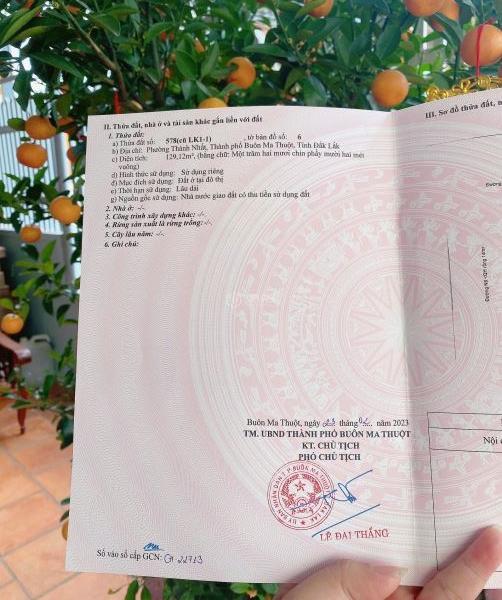 II. Thửa đất, nhà ở và tài sản khác gắn liền với đất
1. Thửa đất:
a) Thửa đất số: 578(cũ LK1-1) , tờ bản đồ số: 6
b) Địa chỉ: Phường Thành Nhất, Thành phố Buôn Ma Thuột, Tỉnh Đắk Lắk
c) Diện tích: 129,12m², (bằng chữ: Một trăm hai mươi chín phẩy mười hai mét
vuông)
d) Hình thức sử dụng: Sử dụng riêng
đ) Mục đích sử dụng: Đất ở tại đô thị
e) Thời hạn sử dụng: Lâu dài
g) Nguồn gốc sử dụng: Nhà nước giao đất có thu tiền sử dụng đất
2. Nhà ở: -/-
3. Công trình xây dựng khác: -/-
4. Rừng sản xuất là rừng trồng: -/-
5. Cây lâu năm: -/-
6. Ghi chú:
Buôn Ma Thuột, ngày tháng năm 2023
TM. UBND THÀNH PHỐ BUÔN MA THUỘT
KT. CHỦ TỊCH
PHÓ CHỦ TỊCH
LÊ ĐẠI THẮNG
Số vào sổ cấp GCN: 22713
III. Sơ đồ thửa đất,
Đường
Nội